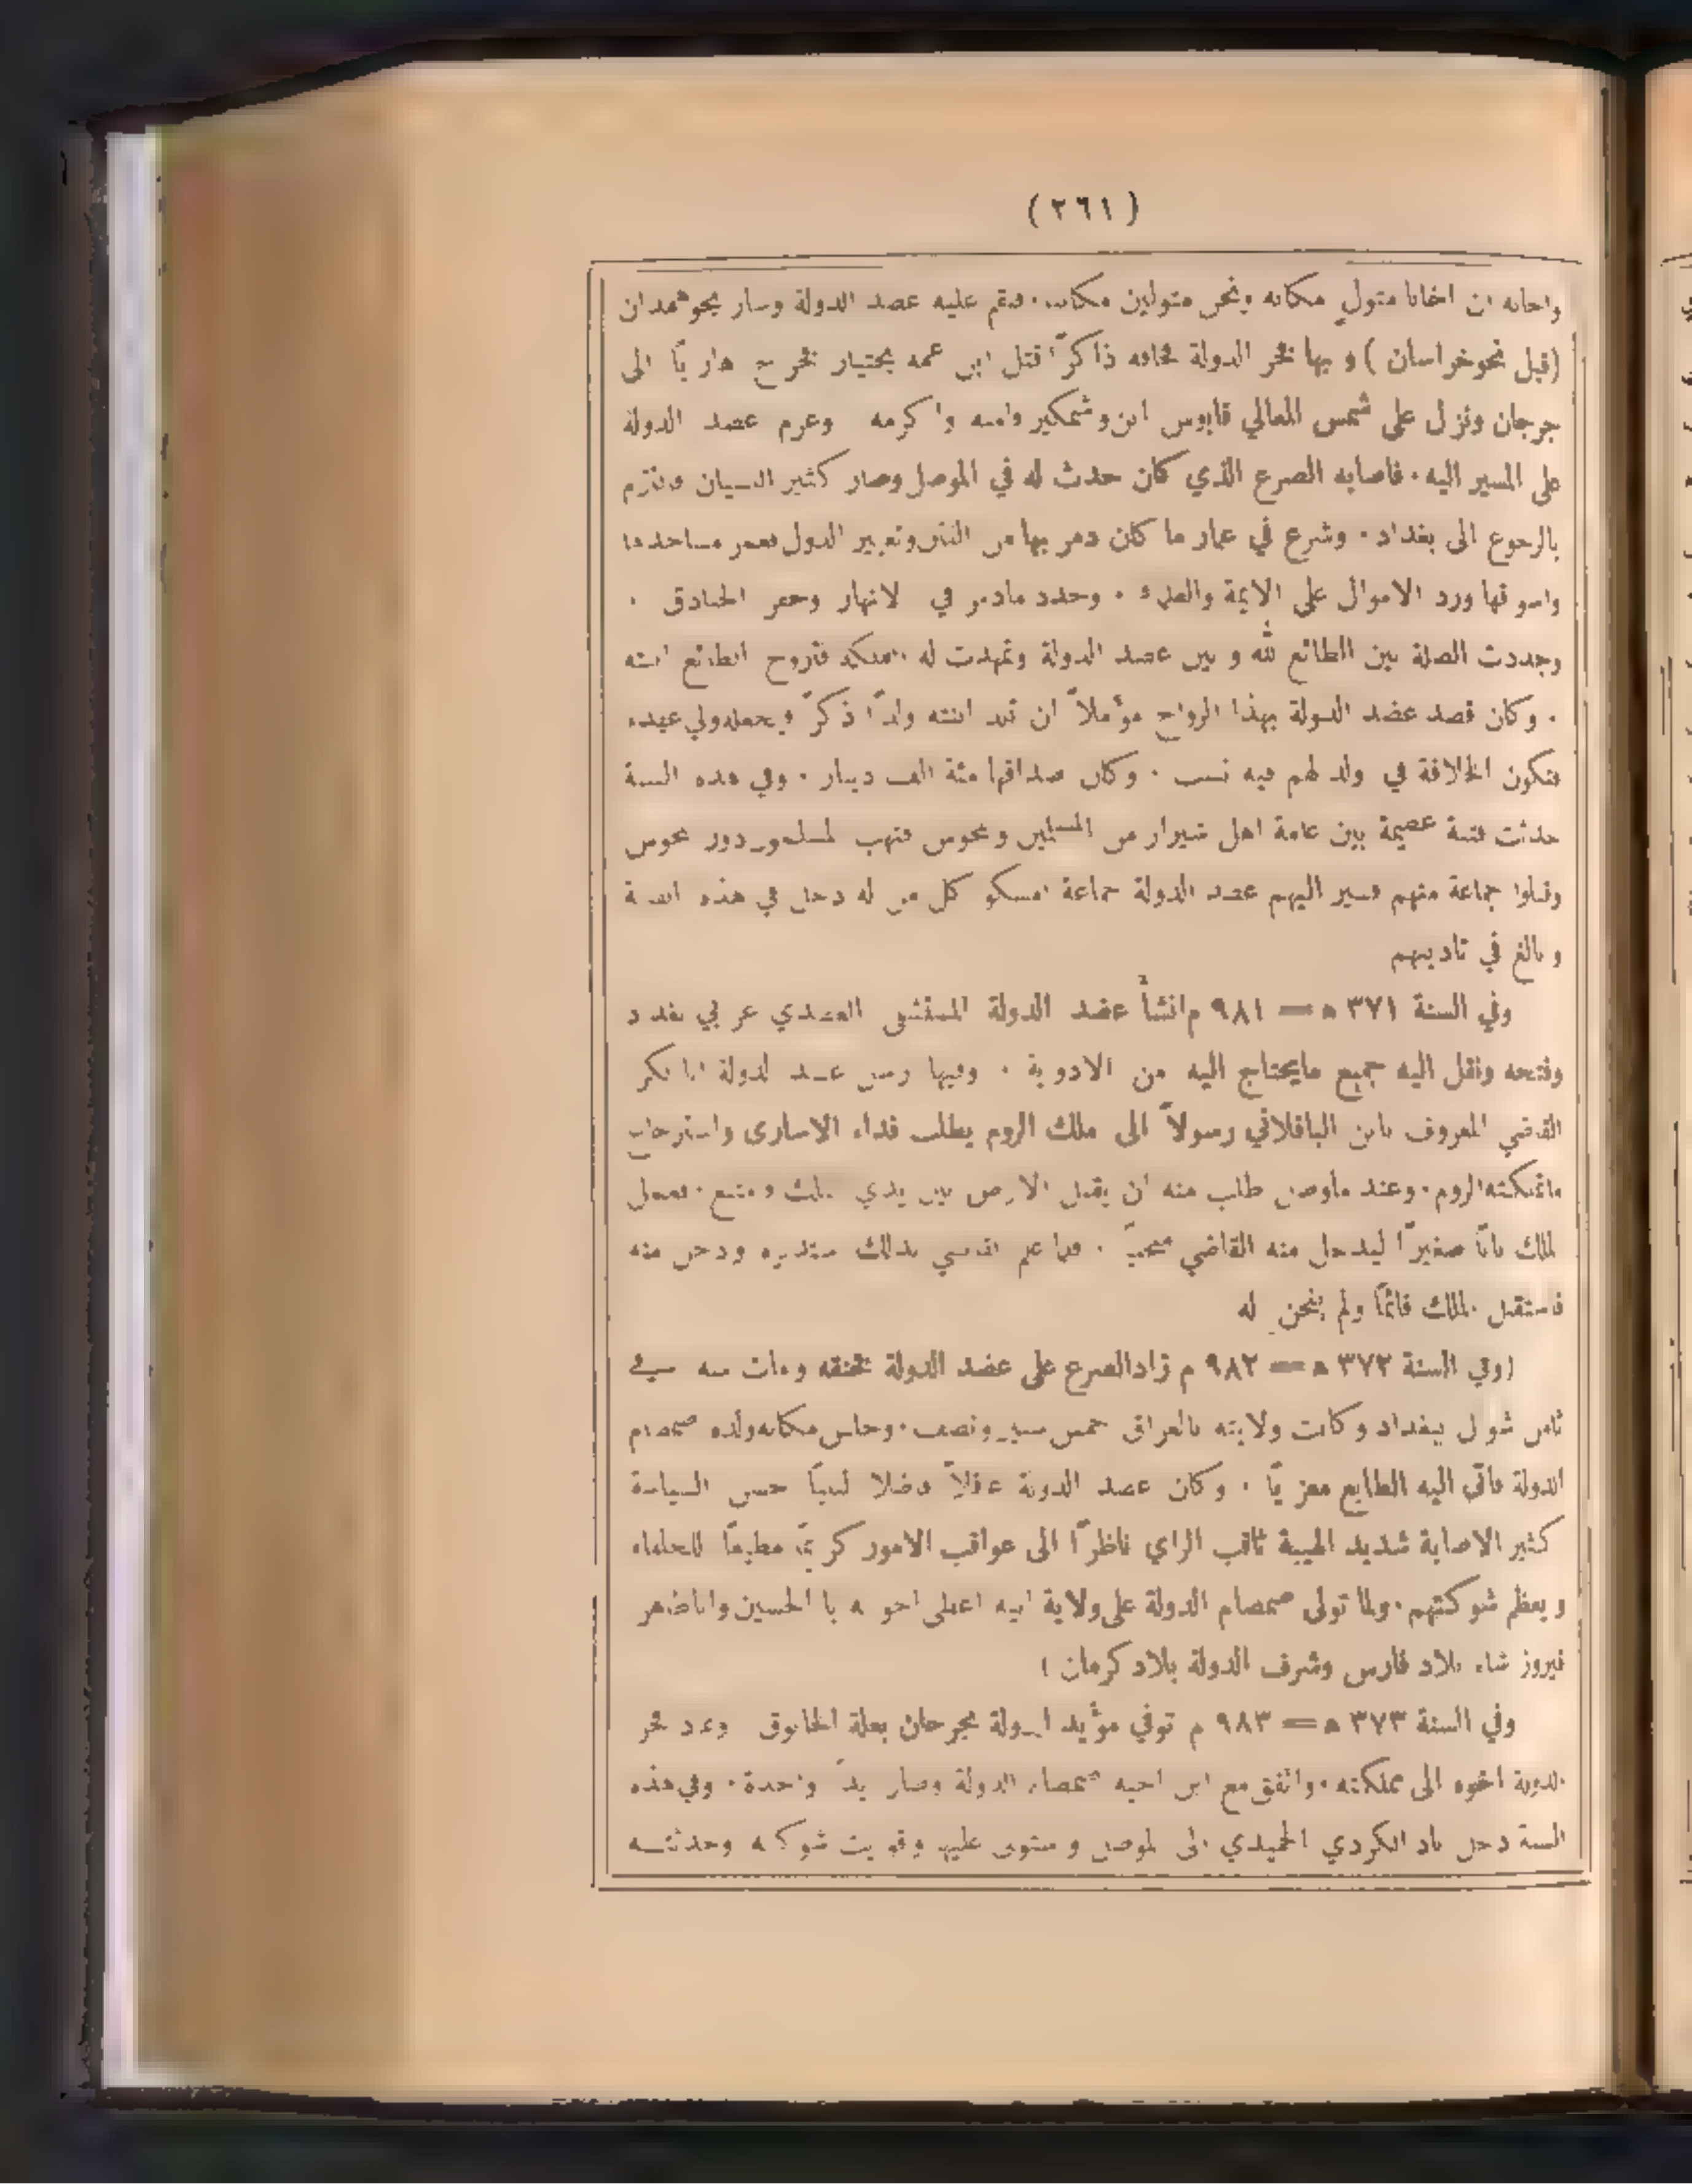 (٢٦١)
واجابه ان اخانا متولٍ مكانه ونحن متولين مكانه · فنقم عليه عضد الدولة وسار نحو همدان
(قيل نحو خراسان) و بها فخر الدولة فخافه ذاكرًا قتل ابن عمه بختيار فخرج هار بًا الى
جرجان ونزل على شمس المعالي قابوس ابن وشمكير وامنه واكرمه وعزم عضد الدولة
على المسير اليه · فاصابه الصرع الذي كان حدث له في الموصل وصار كثير النسيان فالتزم
بالرجوع الى بغداد · وشرع في عمار ما كان دمر بها من الفتن وتغيير الدول فعمر مساجدها
واسواقها ورد الاموال على الايمة والعلماء · وجدد مادمر في الانهار وحفر الخنادق ·
وجددت الصلة بين الطائع لله و بين عضد الدولة وتمهدت له المملكة فتزوج الطائع ابنته
· وكان قصد عضد الدولة بهذا الزواج مؤملاً ان تلد ابنته ولدًا ذكرًا و يجعله ولي عهده
فتكون الخلافة في ولد لهم فيه نسب · وكان صداقها مئة الف دينار · وفي هذه السنة
حدثت فتنة عظيمة بين عامة اهل شيراز من المسلمين والمجوس فنهب المسلمون دور المجوس
وقتلوا جماعة منهم فسير اليهم عضد الدولة جماعة امسكوا كل من له دخل في هذه الفتنة
و بالغ في تاديبهم
وفي السنة ٣٧١ ه = ٩٨١ م انشأ عضد الدولة المستشفى العضدي غربي بغداد
وفتحه ونقل اليه جميع مايحتاج اليه من الادوية · وفيها ارسل عضد الدولة ابا بكر
القاضي المعروف بابن الباقلاني رسولاً الى ملك الروم يطلب فداء الاسارى واسترجاع
ماتملكته الروم · وعند ماوصل طلب منه ان يقبل الارض بين يدي الملك وامتنع · فعمل
الملك بابًا صغيرًا ليدخل منه القاضي منحنيًا · فلما علم القاضي بذلك استدبره ودخل منه
فاستقبل الملك قائمًا ولم ينحن له
(وفي السنة ٣٧٢ ه = ٩٨٢ م زاد الصرع على عضد الدولة فخنقه ومات منه في
ثامن شوال ببغداد وكانت ولايته بالعراق خمس سنين ونصف · وجلس مكانه ولده صمصام
الدولة فاتى اليه الطايع معز يًا · وكان عضد الدولة عاقلاً فاضلا لبيبًا حسن السياسة
كثير الاصابة شديد الهيبة ثاقب الراي ناظرًا الى عواقب الامور كريمًا مطيعًا للعلماء
و يعظم شوكتهم · ولما تولى صمصام الدولة على ولاية ابيه اعطى اخو ه با الحسين واباطاهر
فيروز شاه بلاد فارس وشرف الدولة بلاد كرمان)
وفي السنة ٣٧٣ ه = ٩٨٣ م توفي مؤيد الدولة بجرجان بعلة الخانوق وعاد فخر
الدولة اخوه الى مملكته · واتفق مع ابن اخيه صمصام الدولة وصار يدًا واحدة · وفي هذه
السنة دخل باد الكردي الحميدي الى الموصل واستولى عليها وقويت شوكته وحدثته